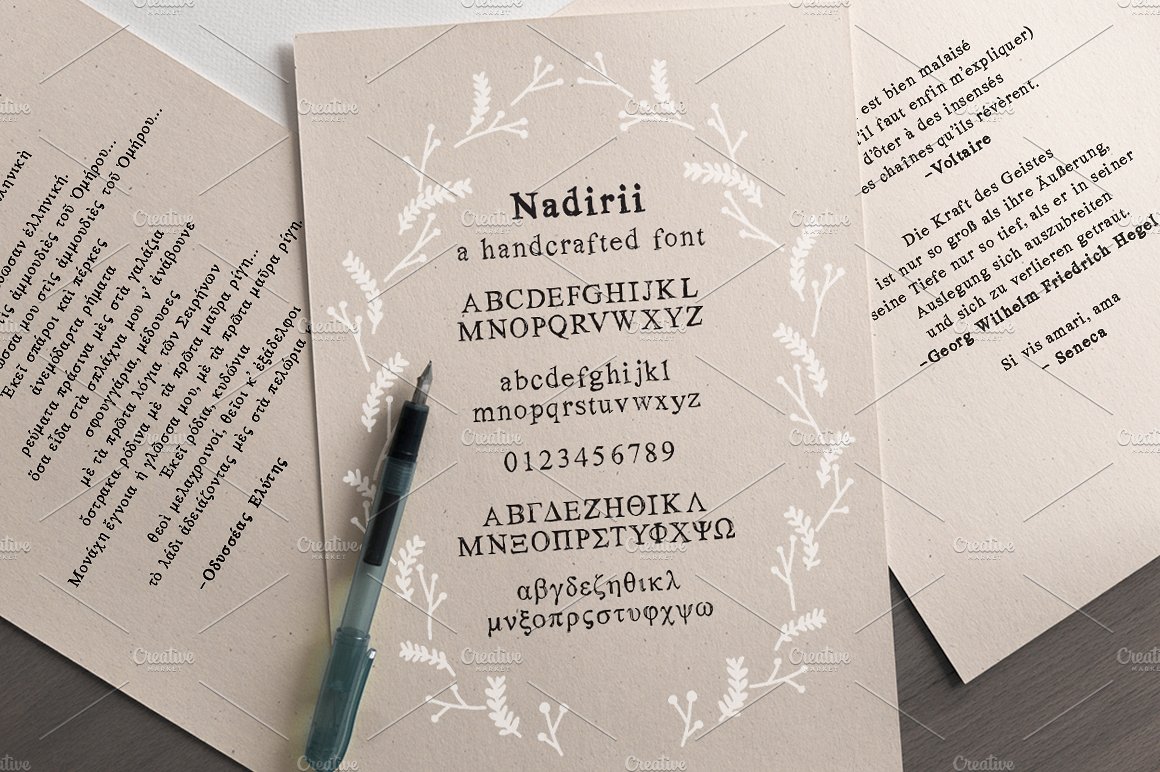 ἑλληνική.
ἀμμουδιὲς τοῦ Ὁμήρου...
μου στὶς ἀμμουδιὲς τοῦ Ὁμήρου...
Ἐκεῖ σπάροι καὶ πέρκες
ἀνεμόδαρτα ρήματα
ρεύματα πράσινα μὲς στὰ γαλάζια
ὅσα εἶδα στὰ σπλάχνα μου ν' ἀνάβουνε
σφουγγάρια, μέδουσες
μὲ τὰ πρῶτα λόγια τῶν Σειρήνων
ὄστρακα ρόδινα μὲ τὰ πρῶτα μαῦρα ρίγη...
Μονάχη ἔγνοια ἡ γλῶσσα μου μὲ τὰ πρῶτα μαῦρα ρίγη.
Ἐκεῖ ρόδια, κυδώνια
θεοὶ μελαχροινοί, θεῖοι κ' ἐξάδελφοι
τὸ λάδι ἀδειάζοντας μὲς στὰ πελώρια
-Οδυσσέας Ελύτης
Nadirii
a handcrafted font
ABCDEFGHIJKL
MNOPQRVWXYZ
abcdefghijkl
mnopqrstuvwxyz
0123456789
ΑΒΓΔΕΖΗΘΙΚΛ
ΜΝΞΟΠΡΣΤΥΦΧΨΩ
αβγδεζηθικλ
μνξοπρςστυφχψω
est bien malaisé
'il faut enfin m'expliquer)
d'ôter à des insensés
es chaînes qu'ils révèrent.
-Voltaire
Die Kraft des Geistes
ist nur so groß als ihre Äußerung,
seine Tiefe nur so tief, als er in seiner
Auslegung sich auszubreiten
und sich zu verlieren getraut.
-Georg Wilhelm Friedrich Hegel
Si vis amari, ama
- Seneca
Creative Market